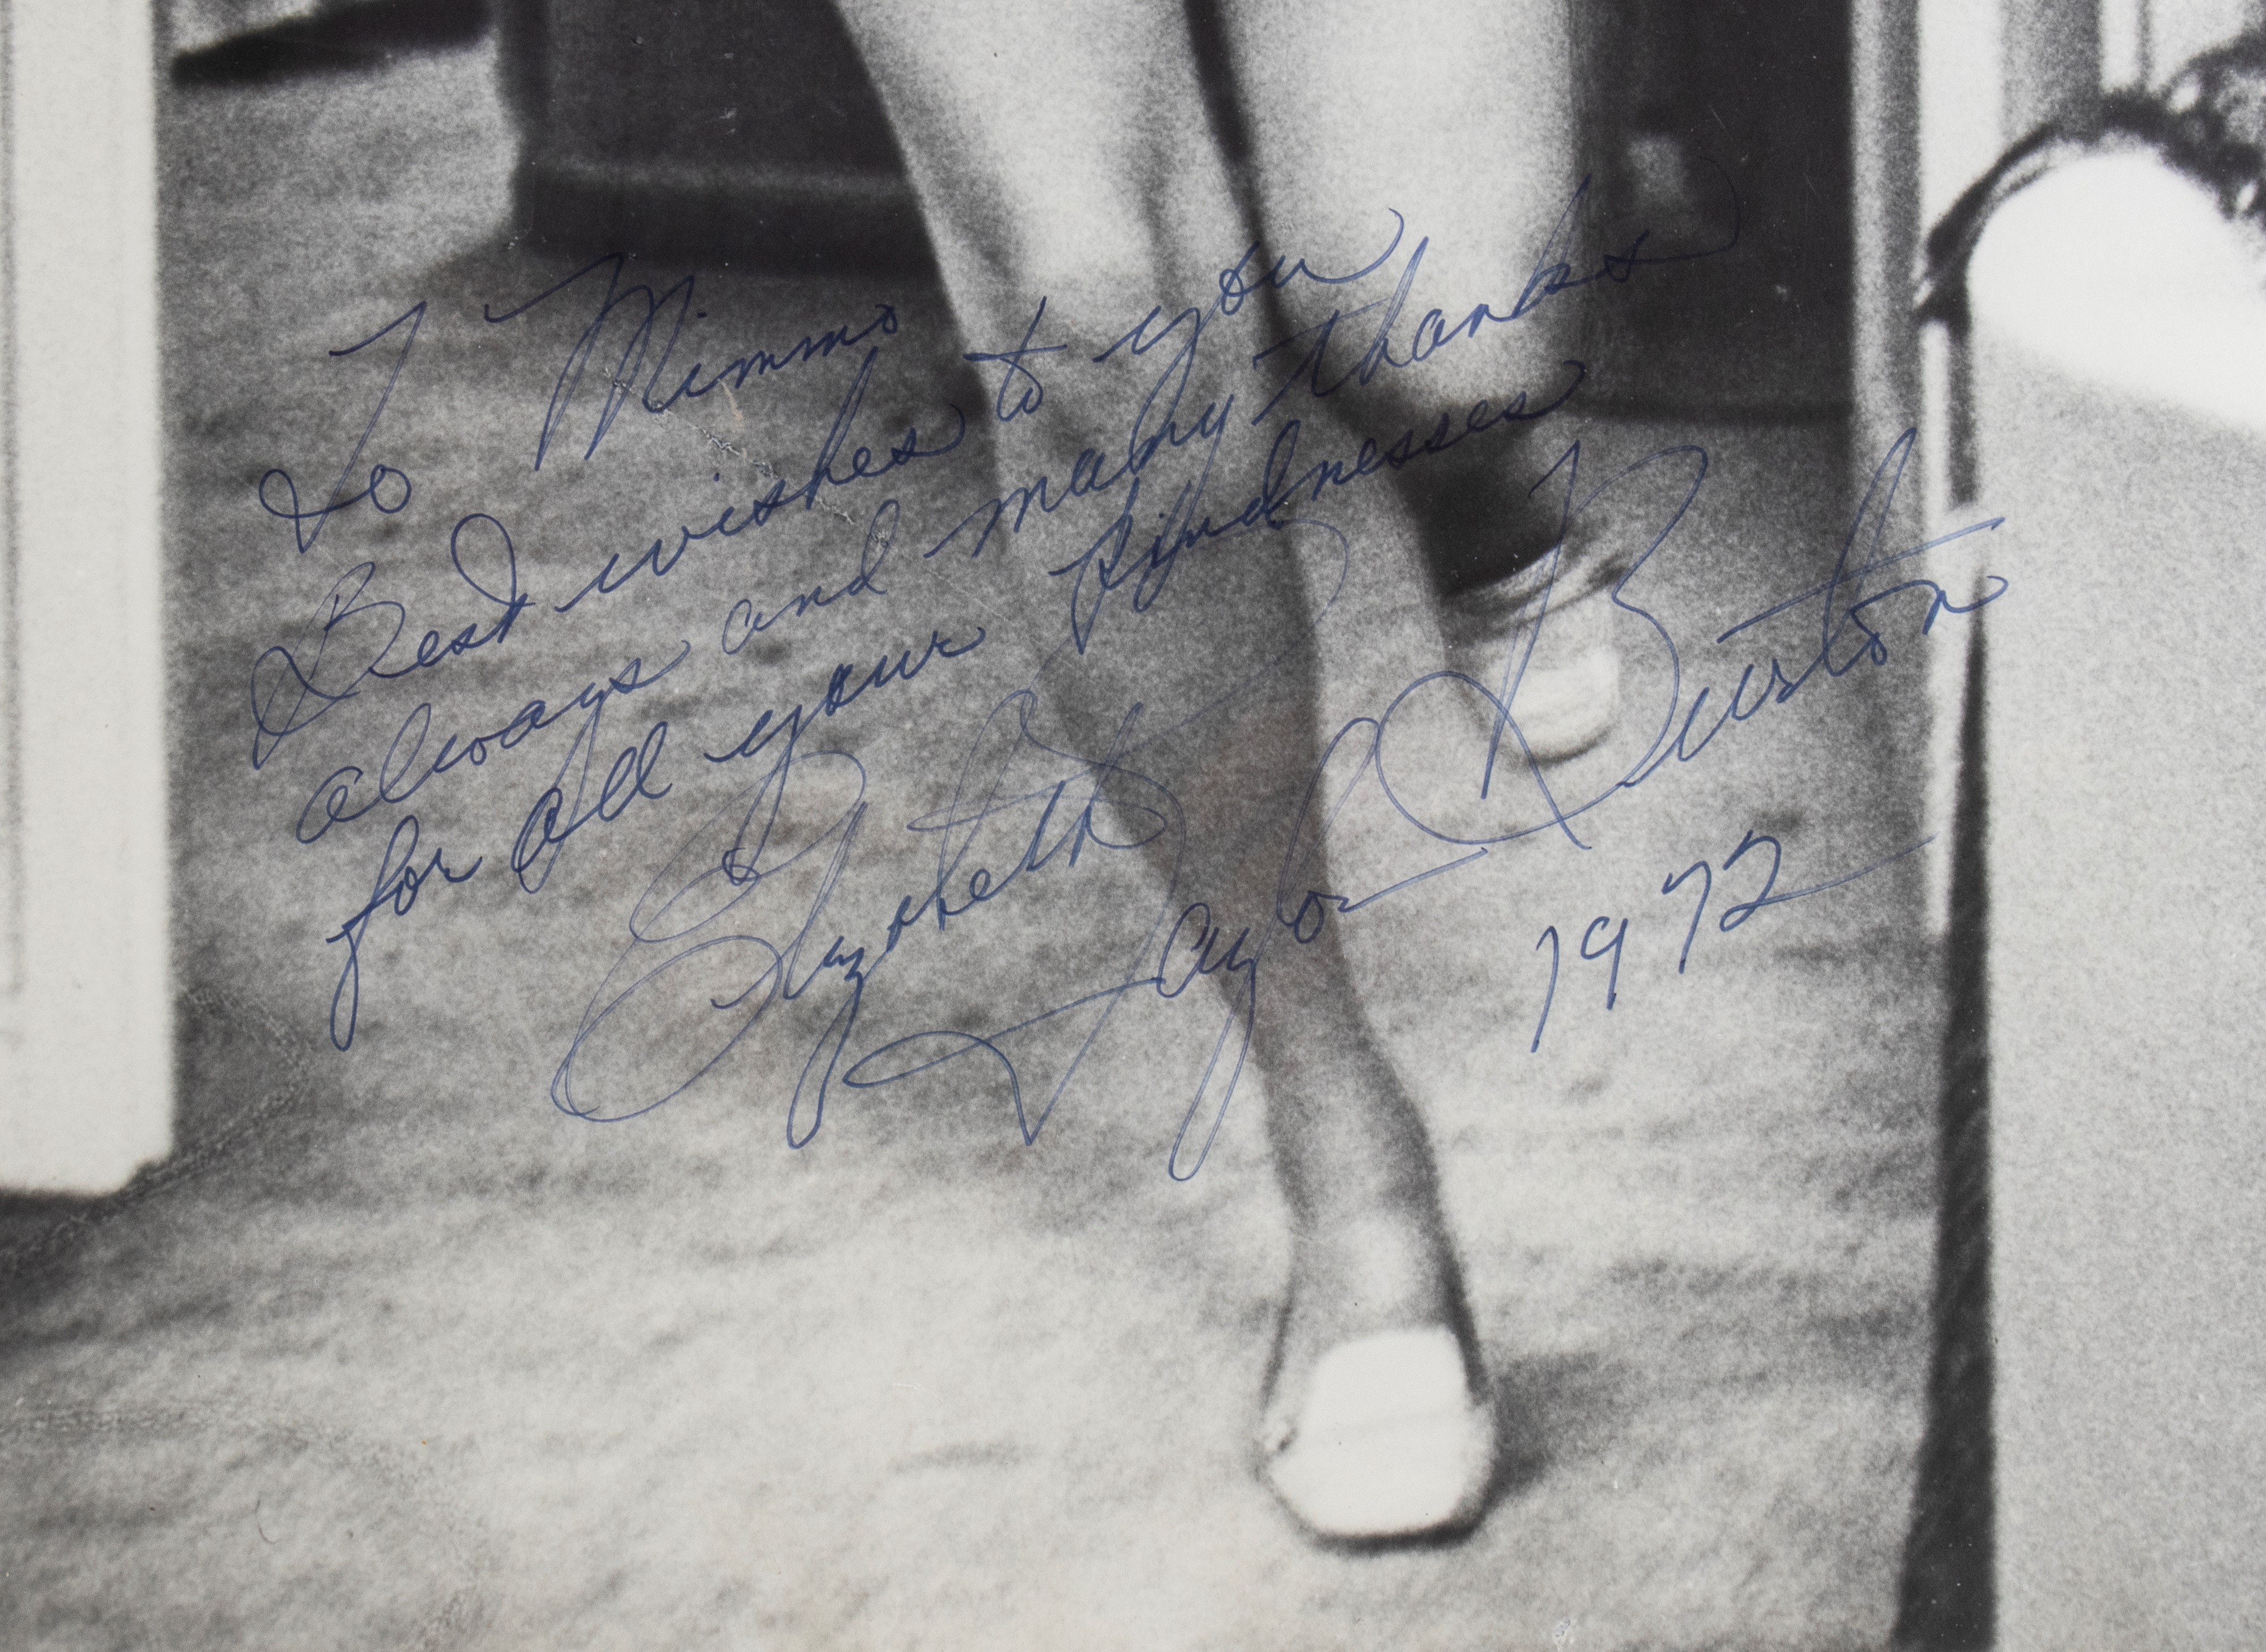 To Mimmo
Best wishes to you
always and many thanks
for all your kindnesses
Elizabeth Taylor Burton
1972